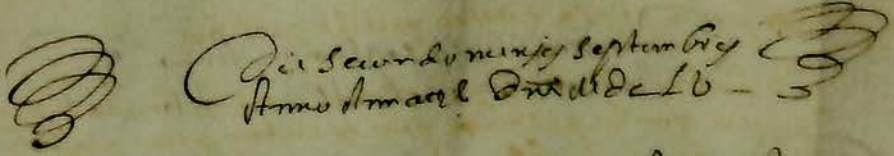 Die secundo mensis septembris
Anno Amatq Dni MDcLV